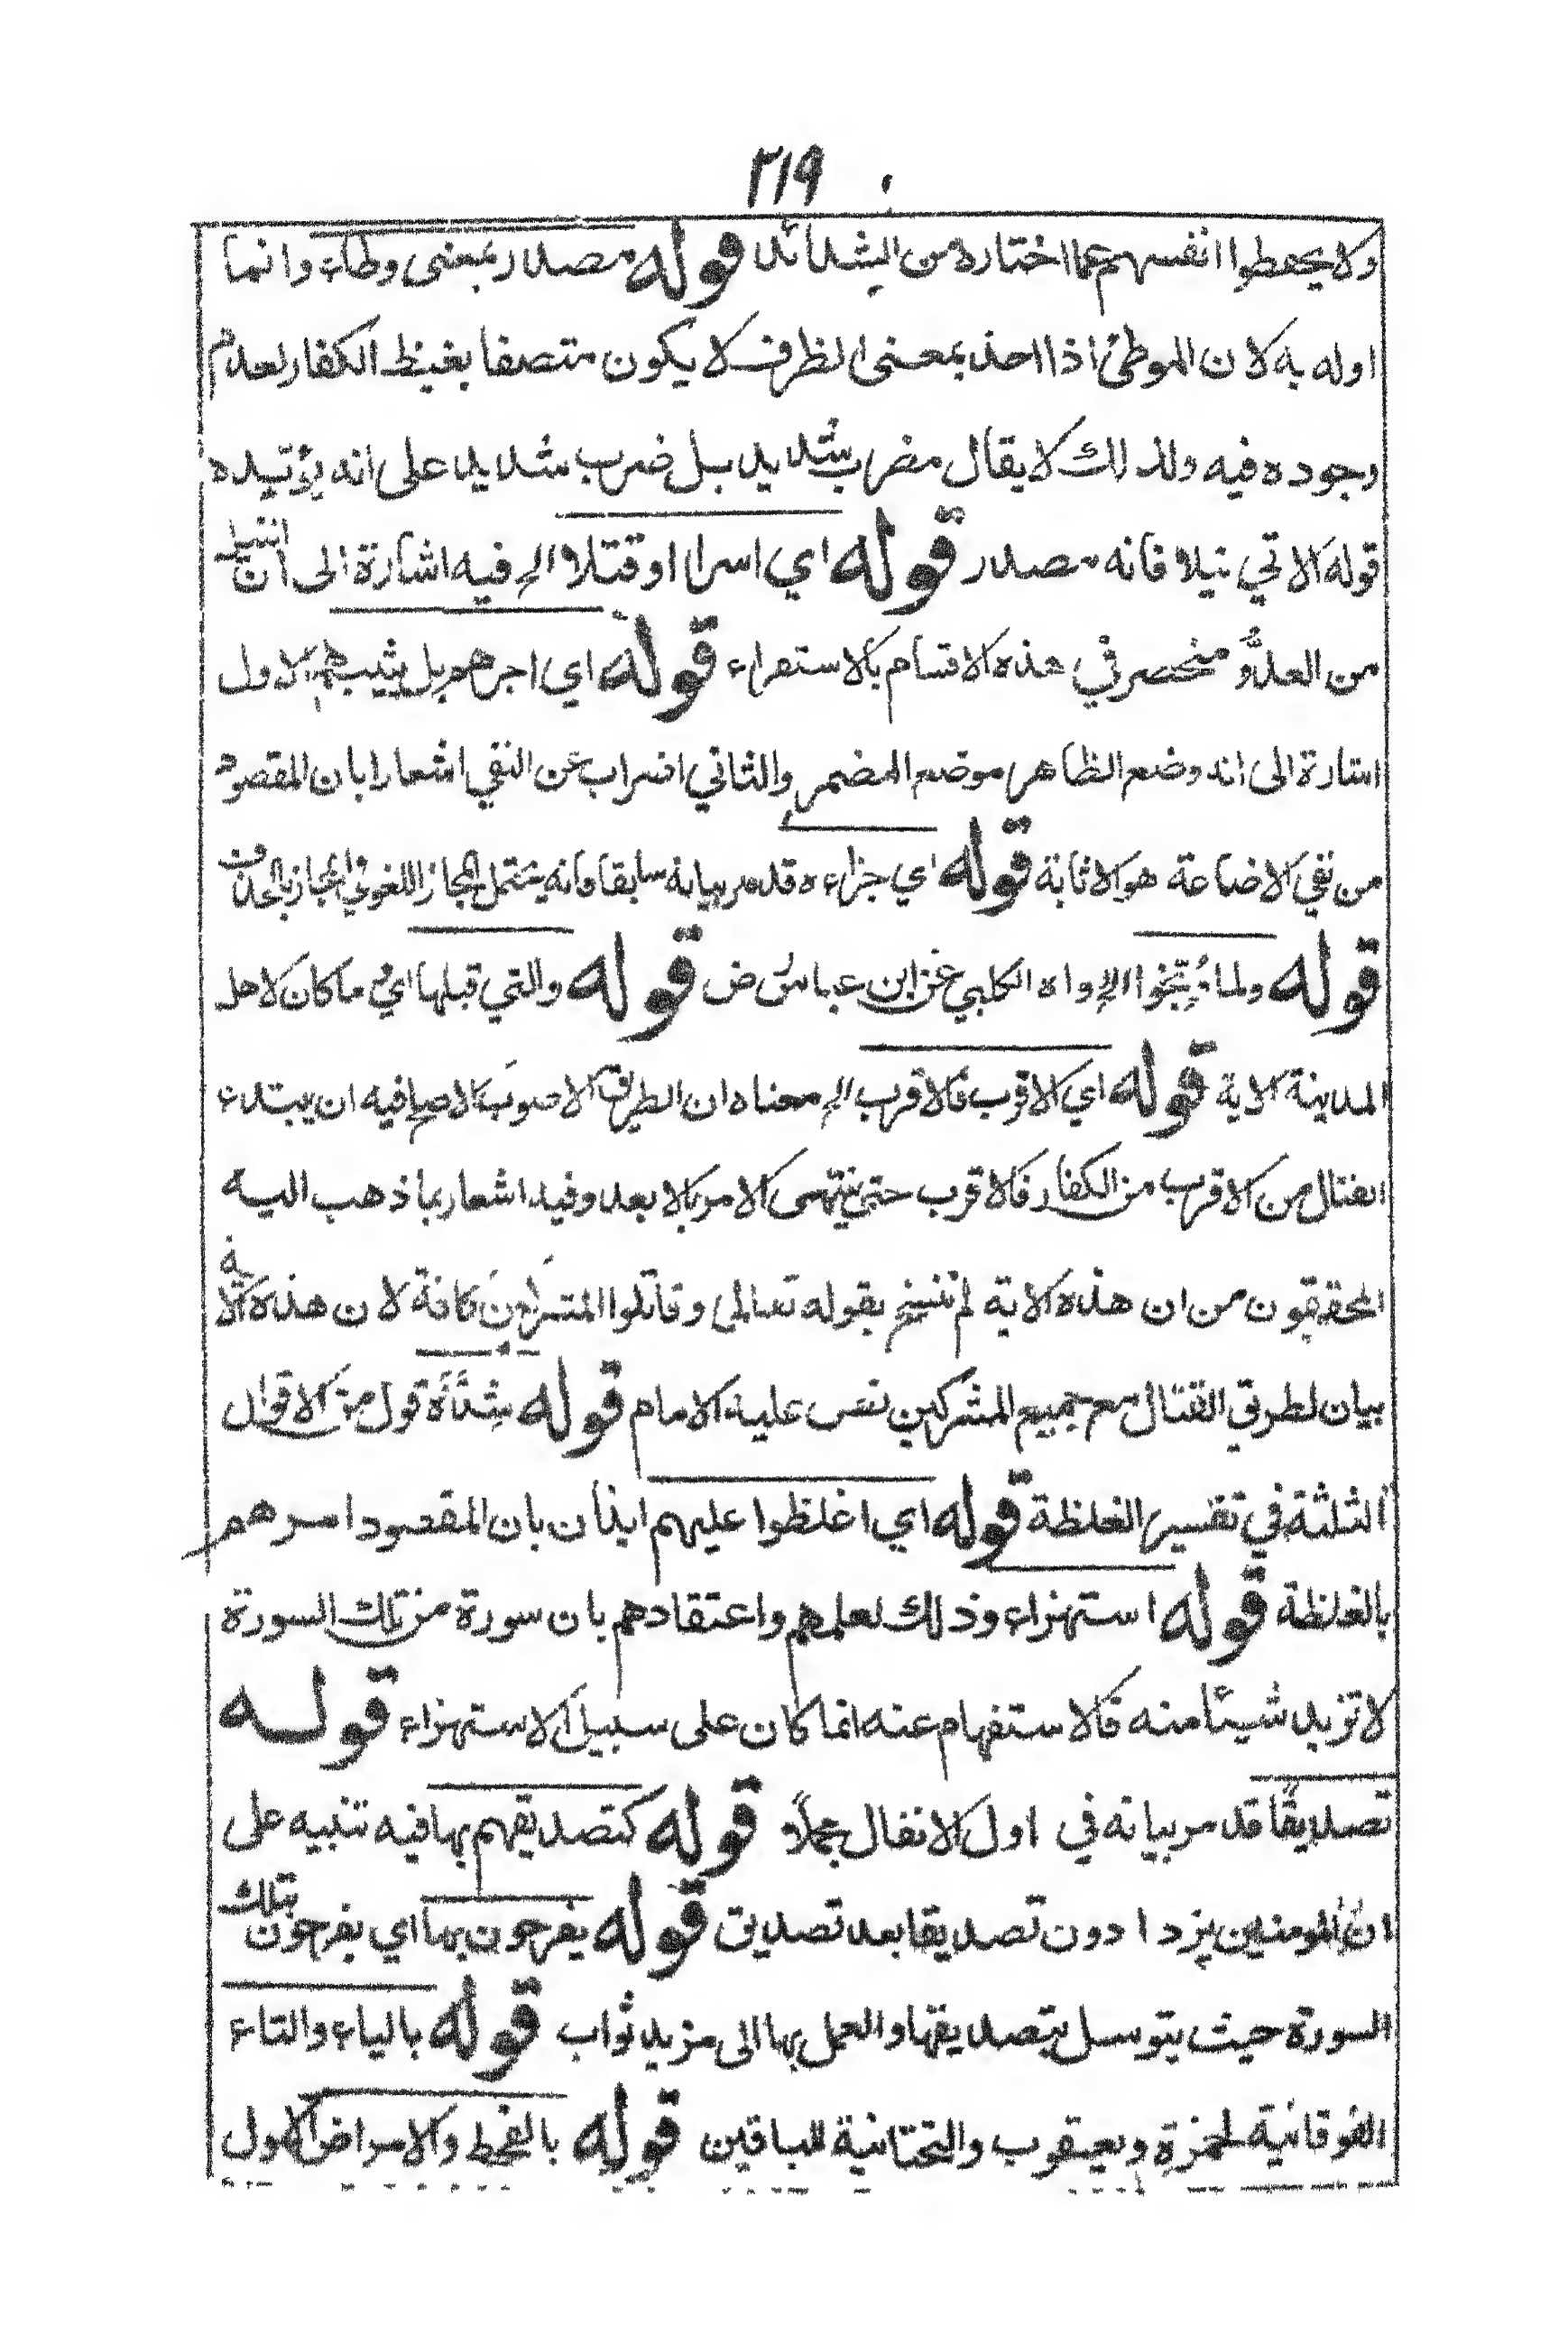 ٢١٩
ولا يحفظوا انفسهم عما اختاره من الشدائد قوله مصدر بمعنى وطاء وانما
اوله به لان الموطئ اذا اخذ بمعنى الظرف لا يكون متصفا بغيظ الكفار لعدم
وجوده فيه ولذلك لا يقال مضرب شديد بل ضرب شديد على انه يؤيده
قوله الاتي نيلا فانه مصدر قوله اي اسرا او قتلا الخ فيه اشارة الى ان النيل
من العدو منحصر في هذه الاقسام بالاستقراء قوله اي اجرهم بل يثيبهم الاول
اشارة الى انه وضع الظاهر موضع المضمر والثاني اضراب عن النفي اشعارا بان المقصود
من نفي الاضاعة هو الاثابة قوله اي جزاءه قد مر بيانه سابقا وانه يحتمل المجاز اللغوي والمجاز بالحذف
قوله ولما وبخوا الخ رواه الكلبي عن ابن عباس رض قوله والتي قبلها اي ما كان لاهل
المدينة الاية قوله اي الاقرب فالاقرب الخ معناه ان الطريق الاصوب الاصلح فيه ان يبتدء
القتال من الاقرب من الكفار فالاقرب حتى ينتهى الامر بالابعد وفيه اشعار بما ذهب اليه
المحققون من ان هذه الاية لم تنسخ بقوله تعالى وقاتلوا المشركين كافة لان هذه الاية
بيان لطرق القتال مع جميع المشركين نص عليه الامام قوله شدة قول من الاقوال
الثلثة في تفسير الغلظة قوله اي اغلظوا عليهم ايذان بان المقصود امرهم
بالغلظة قوله استهزاء وذلك لعلمهم واعتقادهم بان سورة من تلك السورة
لا تزيد شيئا منه فالاستفهام عنه انما كان على سبيل الاستهزاء قوله
تصديقا قد مر بيانه في اول الانفال مجملا قوله كتصديقهم بها فيه تنبيه على
ان المومنين يزدادون تصديقا بعد تصديق قوله يفرحون بها اي يفرحون بتلك
السورة حيث يتوسل بتصديقها والعمل بها الى مزيد ثواب قوله بالياء والتاء
الفوقانية لحمزة ويعقوب والتحتانية للباقين قوله بالقحط والامراض الاول